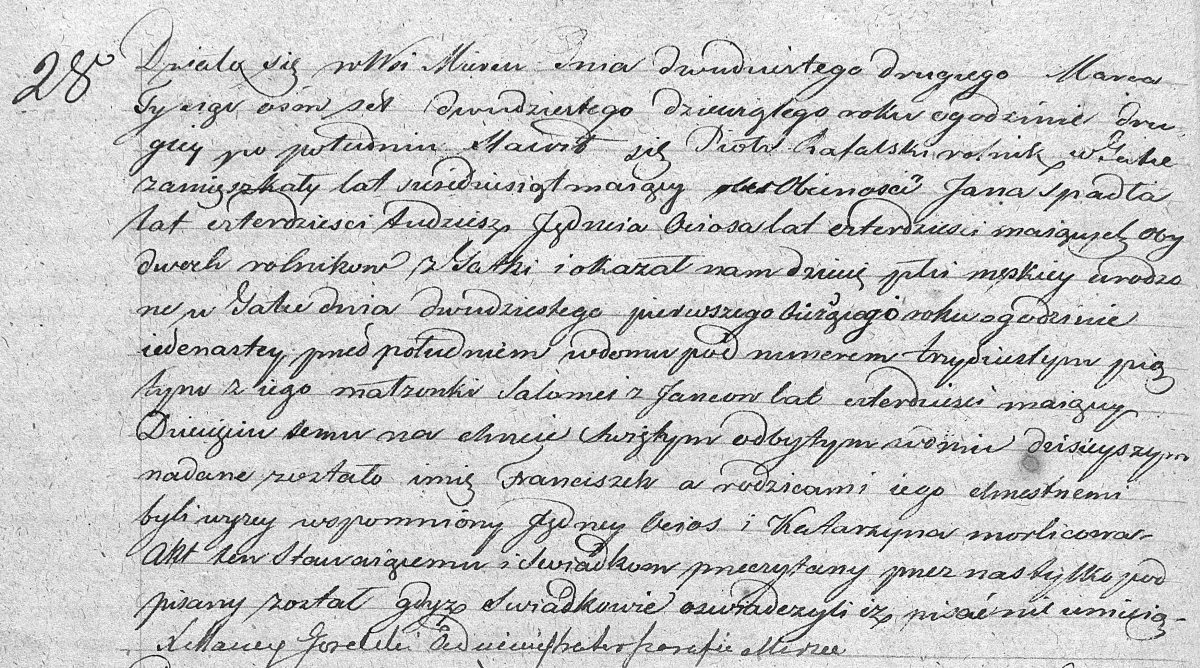 28°
Działo się w Wsi Mircu Dnia dwudziestego drugiego Marca
Tysiąc osim set dwudziestego dziewiątego roku o godzinie dru-
giey po południu Stawił się Piotr Rafalski rolnik w Gatce
zamięszkały lat sześćdziesiąt maiący Obecności Jana Spadła
lat czterdziesci tudziesz Jędrzeia Ociosa lat czterdziesci maiących oby
dwoch rolnikow z Gatki i okazał nam dziecię płci męskiey urodzo
ne w Gatce dnia dwudziestego pierwszego bieżącego roku o godzinie
iedenastey przed południem w domu pod numerem trzydziestym pią
tym z iego małżonki Salomei z Jancow lat czterdziesci maiący
Dziecięciu temu na chrcie Swiętym odbytym w dniu dzisieyszym
nadane zostało imię Franciszek a rodzicami iego chrestnemi
byli wyzey wspomniony Jędrzey Ocios i Katarzyna morlicowa
Akt ten Stawaiącemu i Swiadkom przeczytany przez nas tylko pod
pisany został gdyz Swiadkowie oswiadczyli iz pisać nie umieią-
X Maciey parafii Mirzec